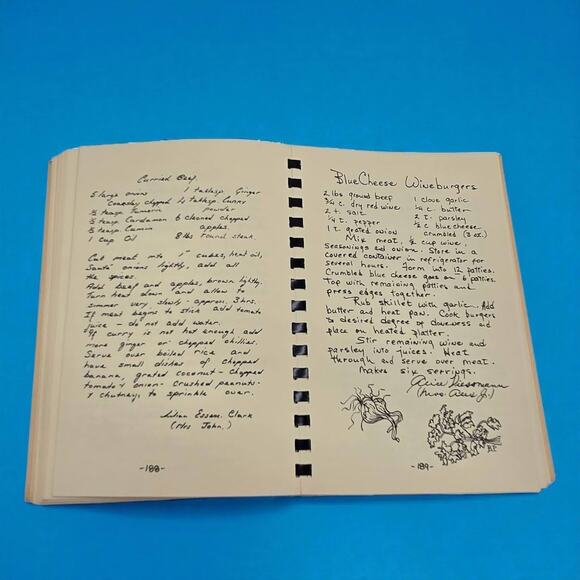 Curried Beef
5 large onions
Coarsley chopped
½ teasp Tumeric
½ teasp Cardamon
½ teasp Cumin
1 cup Oil
1 tablsp. Ginger
2 tablsp. Curry
powder
6 cleaned chopped
apples.
8 lbs round steak.
Cut meat into 1" cubes, heat oil,
Sauté onions lightly, add all
the spices.
Add beef and apples, brown lightly.
Turn heat down and allow to
simmer very slowly - approx. 3 hrs.
If meat begins to stick add tomato
juice - do not add water.
If curry is not hot enough add
more ginger or chopped chillies.
Serve over boiled rice and
have small dishes of chopped
banana, grated coconut - chopped
tomato & onion - crushed peanuts -
& chutney, to sprinkle over.
Clark
(Mrs John.)
-188-
Blue Cheese Wineburgers
2 lbs. ground beef
¾ c. dry red wine
2 t. salt
¼ t. pepper
1 t. grated onion
1 clove garlic
¼ c. butter
2 t. parsley
½ c. blue cheese
crumbled (3 oz.)
Mix meat, ½ cup wine,
seasonings and onion. Store in a
covered container in refrigerator for
several hours. Form into 12 patties.
Crumbled blue cheese goes on 6 patties.
Top with remaining patties and
press edges together.
Rub skillet with garlic. Add
butter and heat pan. Cook burgers
to desired degree of doneness and
place on heated platter.
Stir remaining wine and
parsley into juices. Heat
through and serve over meat.
Makes six servings.
Alice
Jr.)
B.F.
-189-